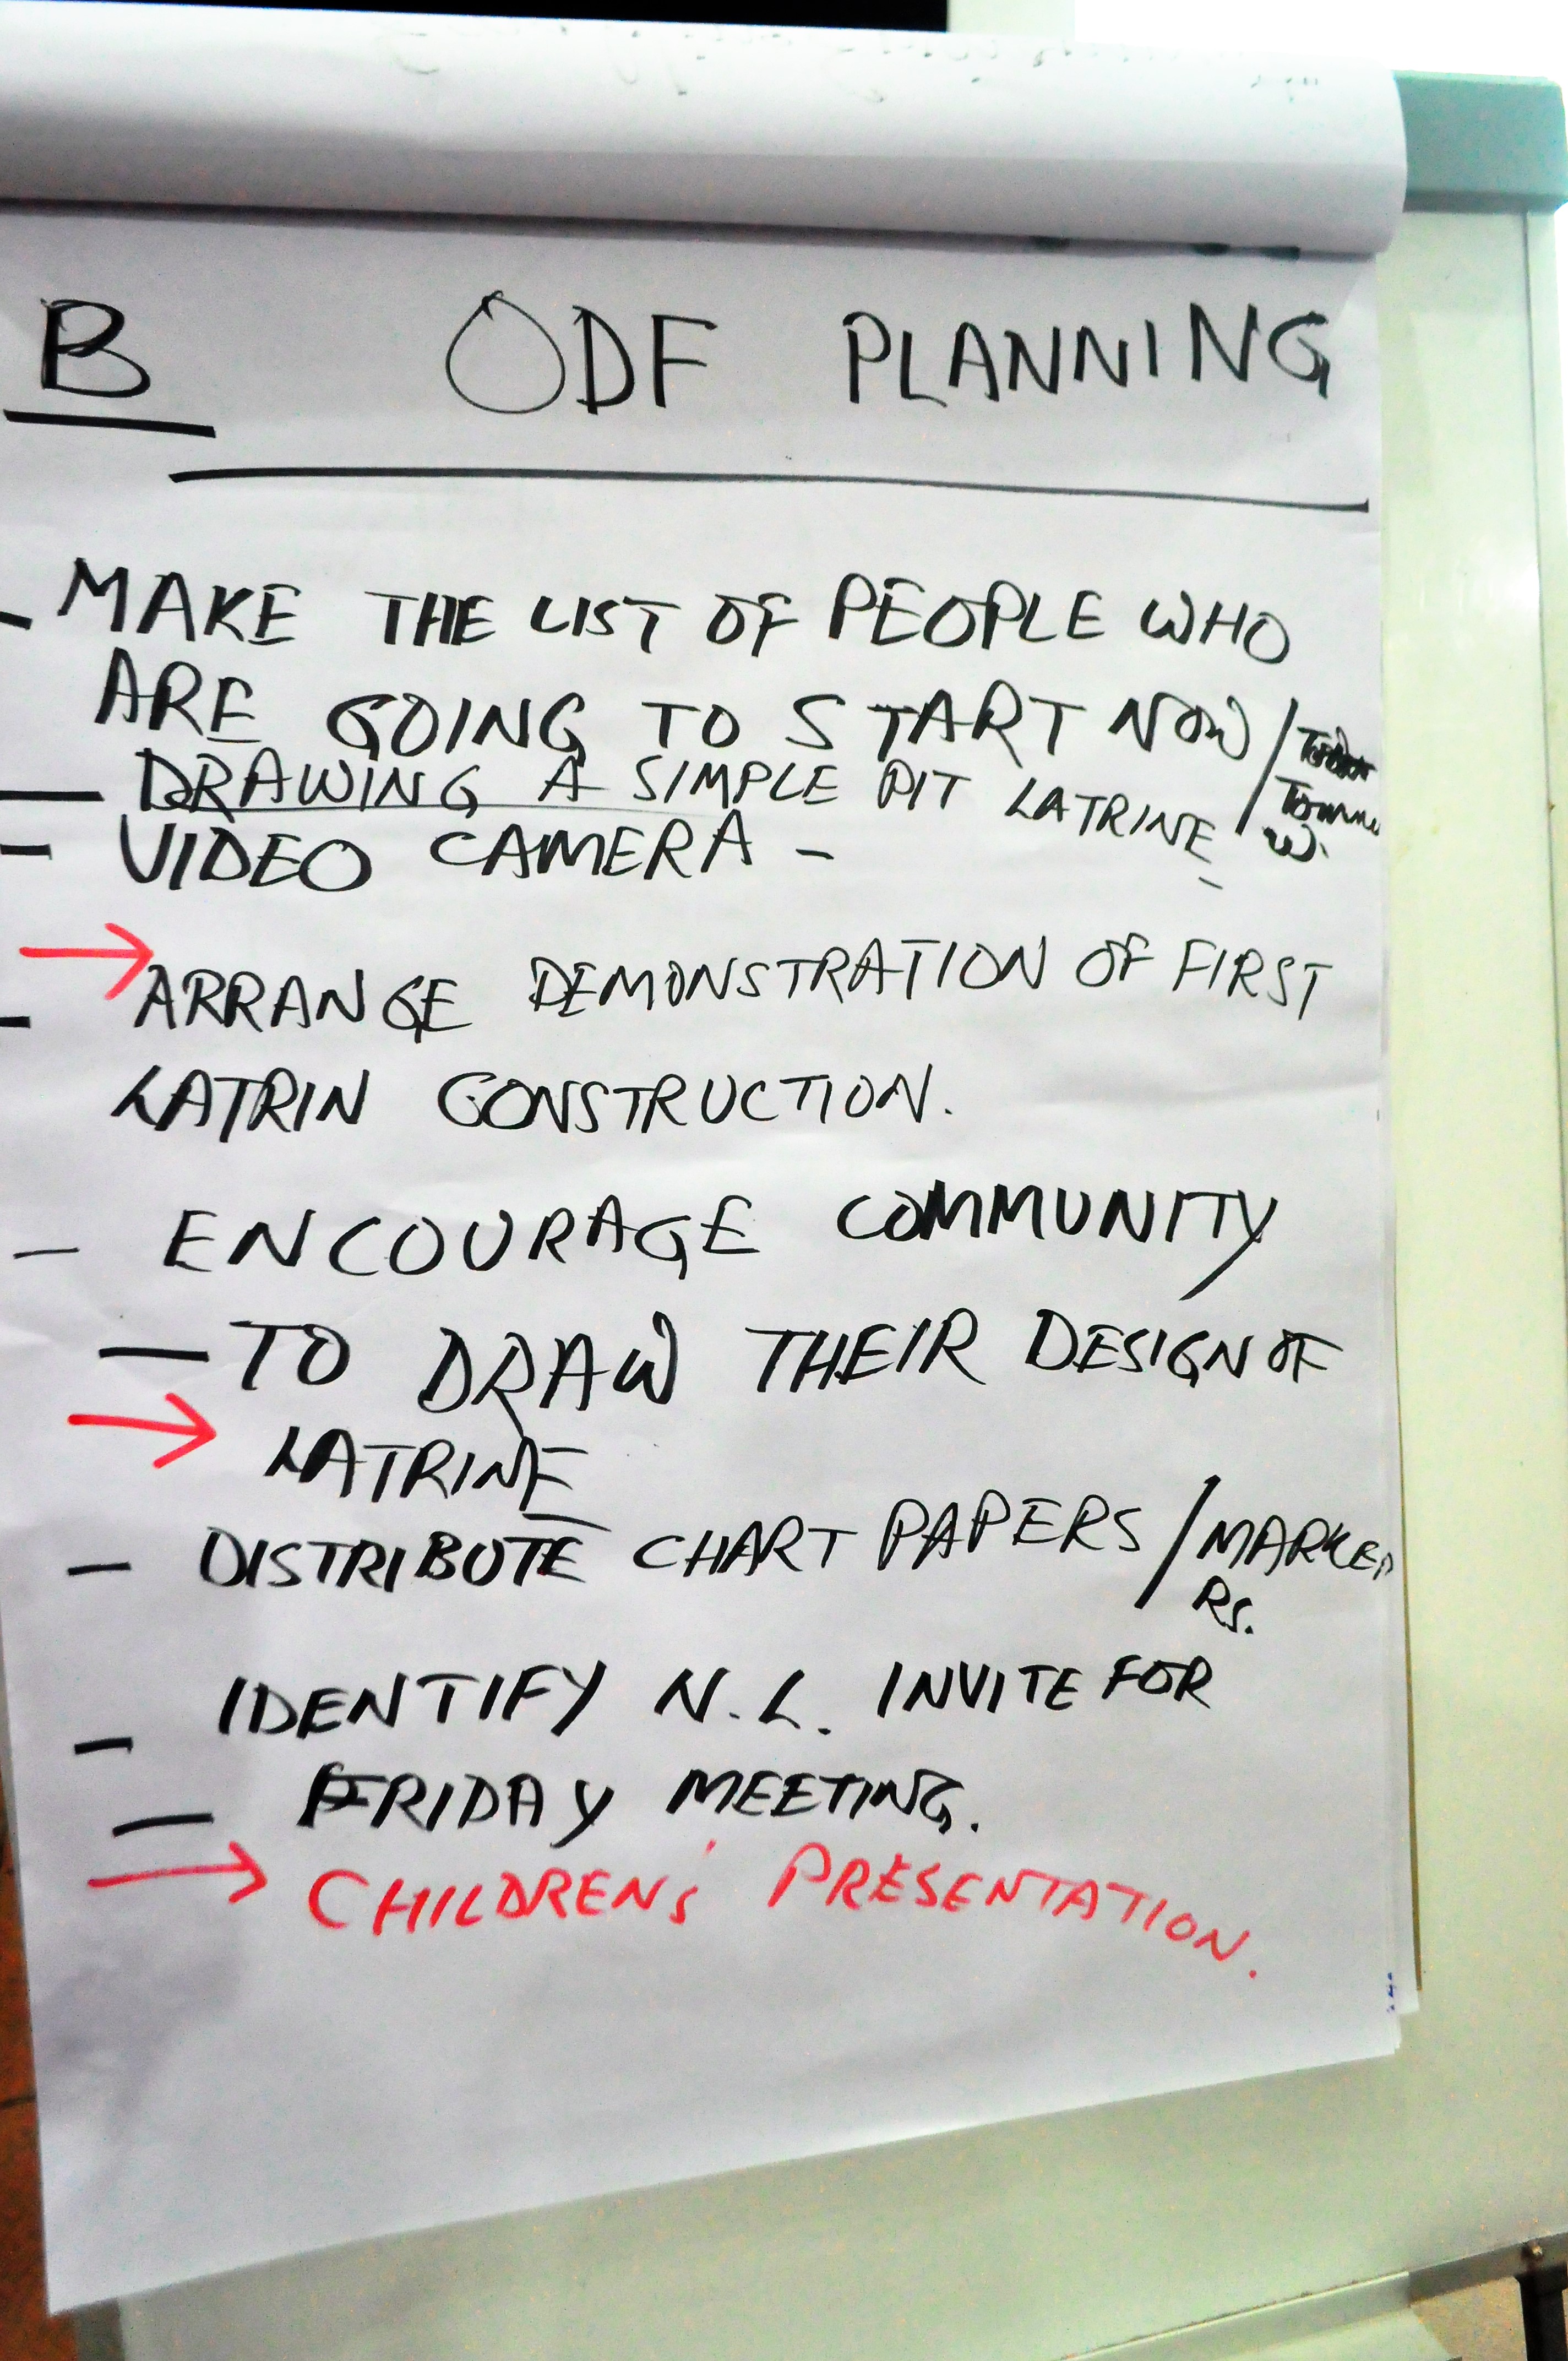 B ODF PLANNING
- MAKE THE LIST OF PEOPLE WHO
ARE GOING TO START NOW /
- DRAWING A SIMPLE PIT LATRINE -
- VIDEO CAMERA -
→ ARRANGE DEMONSTRATION OF FIRST
- LATRIN CONSTRUCTION.
- ENCOURAGE COMMUNITY
- TO DRAW THEIR DESIGN OF
→ LATRINE
- DISTRIBUTE CHART PAPERS / MARKER
RS.
- IDENTIFY N.L. INVITE FOR
- FRIDAY MEETING.
→ CHILDREN'S PRESENTATION.